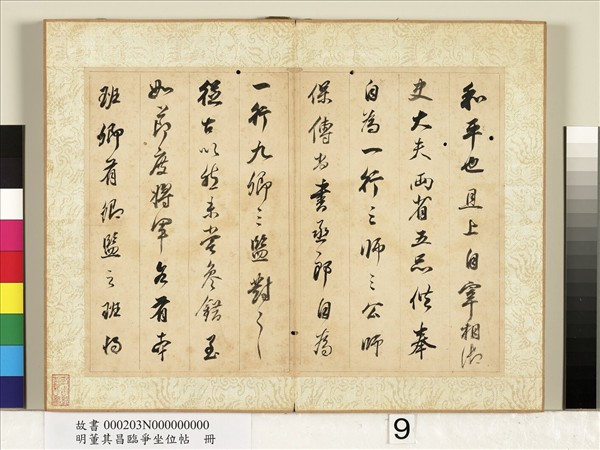 和平也且上自宰相御
史大夫兩省五品供奉
自為一行三師三公師
保傅尚書丞郎自為
一行九卿三監對之
從古以然未嘗參錯至
如節度將軍各有本
班卿有卿監之班將
故書 000203N000000000
明董其昌臨爭坐位帖 冊
9